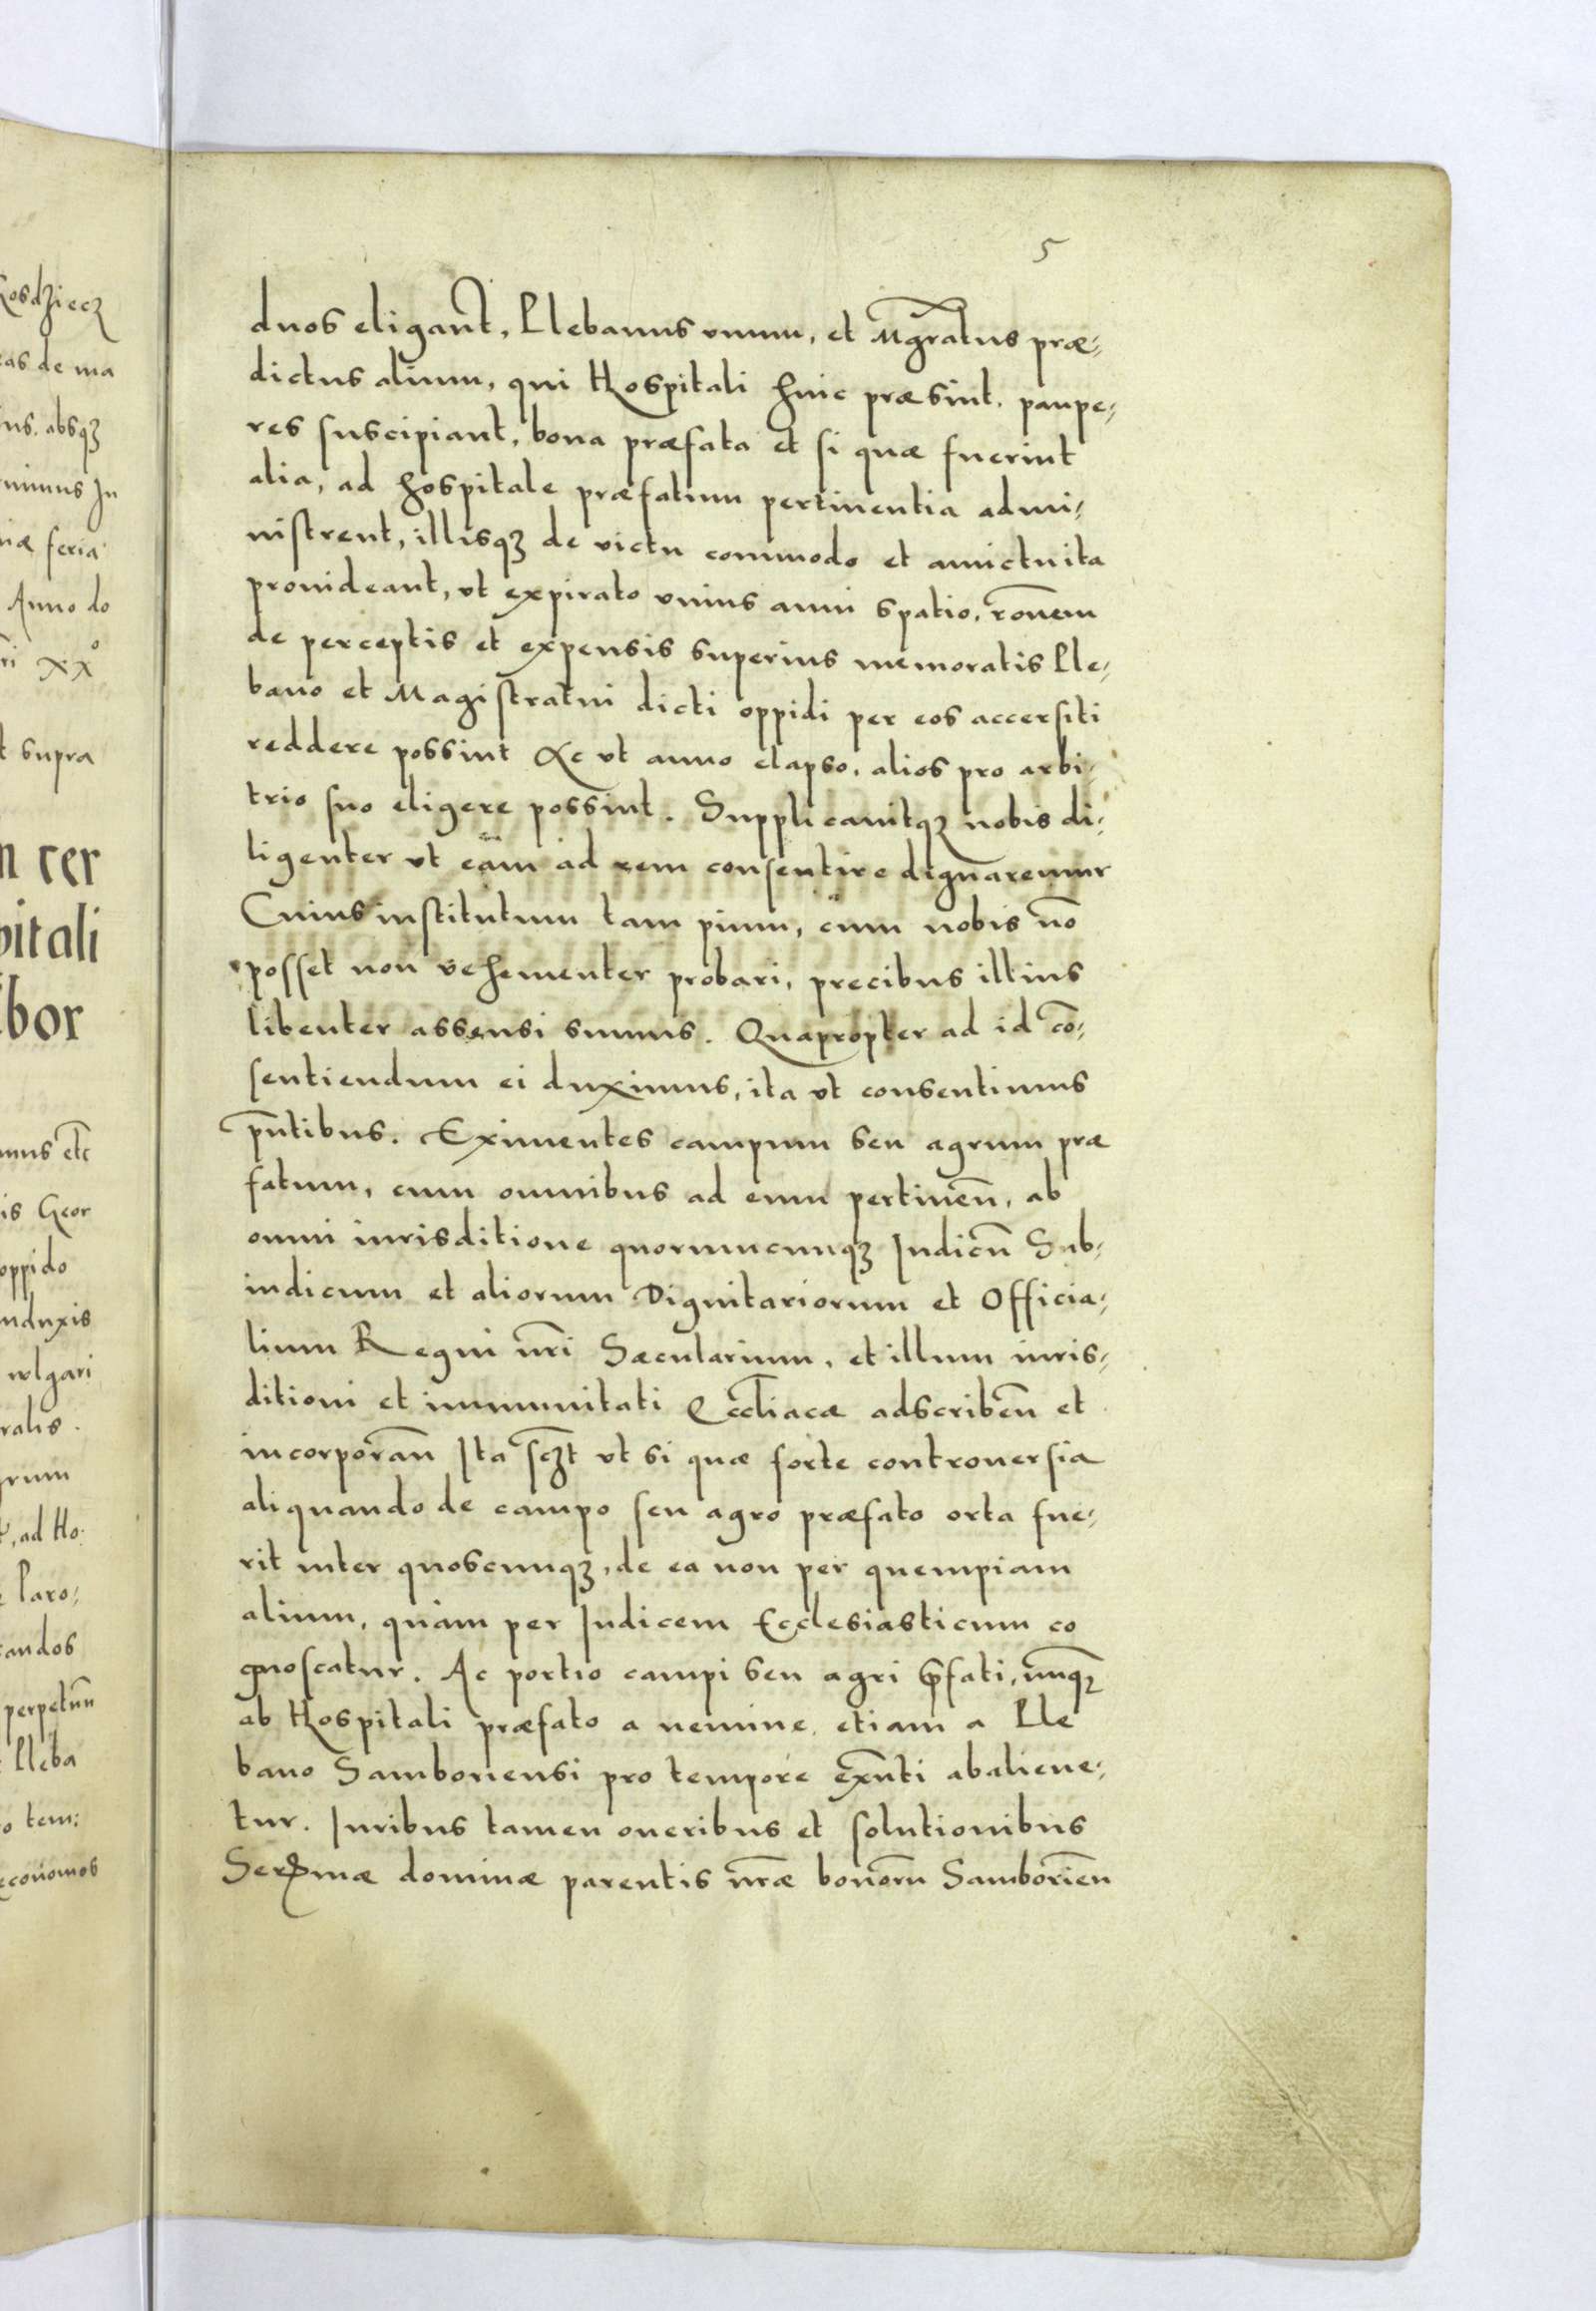 5
duos eligant, Plebanus unum, et Mgratus præ-
dictus alium, qui Hospitali huic præsint, paupe-
res suscipiant, bona præfata et si quæ fuerint
alia, ad hospitale præfatum pertinentia admi-
nistrent, illisqꝫ de victu commodo et amictu ita
prouideant, vt expirato vnius anni spatio, rōnem
de perceptis et expensis superius memoratis Ple-
bano et Magistratui dicti oppidi per eos accersiti
reddere possint &c vt anno elapso, alios pro arbi-
trio suo eligere possint. Supplicauitqꝫ nobis di-
ligenter vt eam ad rem consentire dignaremur
Cuius institutum tam pium, cum nobis nō
posset non vehementer probari, precibus illius
libenter assensi sumus. Quapropter ad id cō-
sentiendum ei duximus, ita vt consentimus
pn̄tibus. Eximentes campum seu agrum præ
fatum, cum omnibus ad eum pertinen̄, ab
omni iurisditione quorumcumqꝫ Iudicū Sub-
iudicum et aliorum Dignitariorum et Officia-
lium Regni nr̄i Sæcularium, et illum iuris-
ditioni et immunitati Eccl̄iacæ adscriben̄ et
incorporan̄ Ita scꝫt vt si quæ forte controuersia
aliquando de campo seu agro præfato orta fue-
rit inter quoscumqꝫ, de ea non per quempiam
alium, quàm per Iudicem Ecclesiasticum co
gnoscatur. Ac portio campi seu agri p̄fati, nunqꝫ
ab Hospitali præfato a nemine, etiam a Ple
bano Samboriensi pro tempore exn̄ti abaliene-
tur. Iuribus tamen oneribus et solutionibus
Serꝰmæ dominæ parentis nr̄æ bonorū Samborien̄